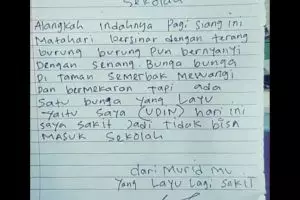 Sekolah
Alangkah Indahnya Pagi siang ini
Matahari bersinar dengan terang
burung burung Pun bernyanyi
Dengan senang Bunga bunga
Di taman Semerbak Mewangi
Dan bermekaran Tapi ada
Satu bunga yang Layu
Yaitu Saya (UDIN) hari ini
saya sakit Jadi Tidak bisa
MASUK Sekolah
dari Murid mu
Yang Layu Lagi SakiT